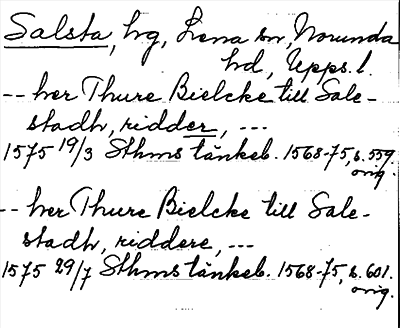 Salsta, hg, Lena sn, Norunda
hd, Upps. l.
-- her Thure Bielcke till Sale-
stadh, ridder, ---
1575 19/3 Sthms tänkeb. 1568-75, s. 559.
orig.
-- her Thure Bielcke till Sale-
stadh, riddere, ---
1575 29/7 Sthms tänkeb. 1568-75, s. 601.
orig.